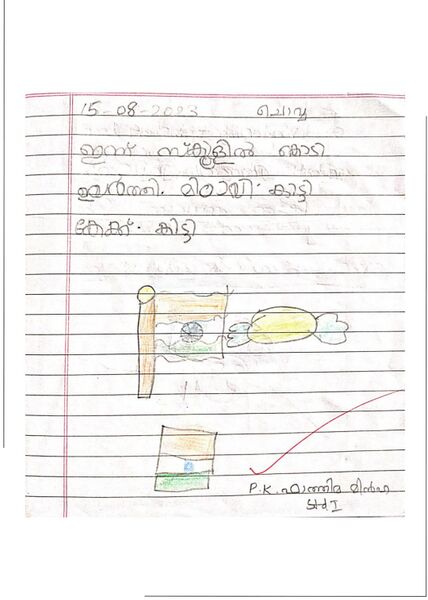 15-08-2023 ചൊവ്വ
ഇന്ന് സ്കൂളിൽ കൊടി
ഉയർത്തി. മിഠായി കിട്ടി
കേക്ക്. കിട്ടി
P.K. ഫാത്തിമ മിൻഹ
Std I